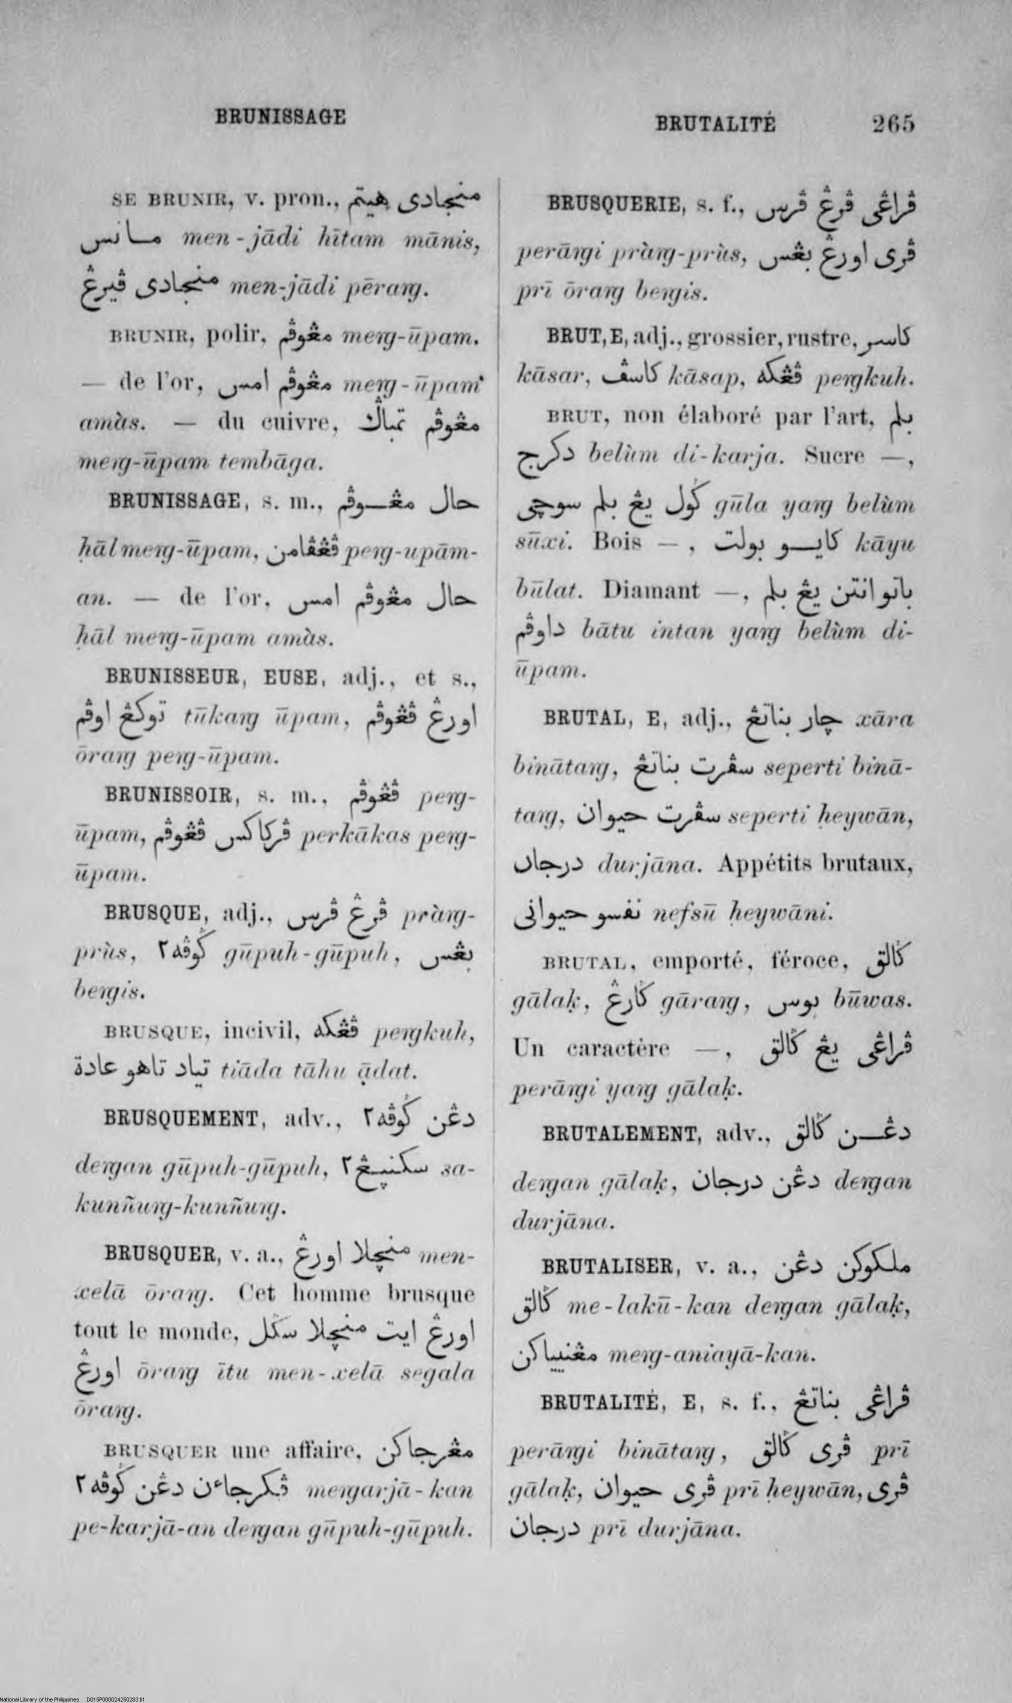 BRUNISSAGE
BRUTALITÉ 265
SE BRUNIR, v. pron., منجادى هيتم
مانس men-jādi hītam mānis,
منجادى ڤيرڠ men-jādi pēraŋ.
BRUNIR, polir, مڠوڤم meŋ-ūpam.
— de l'or, مڠوڤم امس meŋ-ūpam
amàs. — du cuivre, مڠوڤم تمباݢ
meŋ-ūpam tembāga.
BRUNISSAGE, s. m., حال مڠوڤم
ḥāl meŋ-ūpam, ڤڠڤامن peŋ-upām-
an. — de l'or, حال مڠوڤم امس
ḥāl meŋ-ūpam amàs.
BRUNISSEUR, EUSE, adj., et s.,
توكڠ اوڤم tūkaŋ ūpam, اورڠ ڤڠوڤم
ōraŋ peŋ-ūpam.
BRUNISSOIR, s. m., ڤڠوڤم peŋ-
ūpam, ڤركاكس ڤڠوڤم perkākas peŋ-
ūpam.
BRUSQUE, adj., ڤرڠ ڤرس pràŋ-
prùs, ݢوڤه٢ gūpuh-gūpuh, بڠس
beŋis.
BRUSQUE, incivil, ڤڠكه peŋkuh,
تياد تاهو عادة tiāda tāhu ạ̄dat.
BRUSQUEMENT, adv., دڠن ݢوڤه٢
deŋan gūpuh-gūpuh, سكنيڠ٢ sa-
kunñuŋ-kunñuŋ.
BRUSQUER, v. a., منچلا اورڠ men-
xelā ōraŋ. Cet homme brusque
tout le monde, اورڠ ايت منچلا سݢل
اورڠ ōraŋ ītu men-xelā segala
ōraŋ.
BRUSQUER une affaire, مڠرجاكن
ڤكرجاءن دڠن ݢوڤه٢ meŋarjā-kan
pe-karjā-an deŋan gūpuh-gūpuh.
BRUSQUERIE, s. f., ڤراڠى ڤرڠ ڤرس
perāŋi pràŋ-prùs, ڤرى اورڠ بڠس
prī ōraŋ beŋis.
BRUT, E, adj., grossier, rustre, كاسر
kāsar, كاسڤ kāsap, ڤڠكه peŋkuh.
BRUT, non élaboré par l'art, بلم
دكرج belùm di-karja. Sucre —,
ݢول يڠ بلم سوچى gūla yaŋ belùm
sūxi. Bois —, كايو بولت kāyu
būlat. Diamant —, باتو انتن يڠ بلم
داوڤم bātu intan yaŋ belùm di-
ūpam.
BRUTAL, E, adj., چار بناتڠ xāra
binātaŋ, سڤرت بناتڠ seperti binā-
taŋ, سڤرت حيوان seperti ḥeywān,
درجان durjāna. Appétits brutaux,
نفسو حيوانى nefsū ḥeywāni.
BRUTAL, emporté, féroce, ݢالق
gālaḳ, ݢارڠ gāraŋ, بوس būwas.
Un caractère —, ڤراڠى يڠ ݢالق
perāŋi yaŋ gālaḳ.
BRUTALEMENT, adv., دڠن ݢالق
deŋan gālaḳ, دڠن درجان deŋan
durjāna.
BRUTALISER, v. a., ملكوكن دڠن
ݢالق me-lakū-kan deŋan gālaḳ,
مڠنيياكن meŋ-aniayā-kan.
BRUTALITÉ, E, s. f., ڤراڠى بناتڠ
perāŋi binātaŋ, ڤرى ݢالق prī
gālaḳ, ڤرى حيوان prī ḥeywān, ڤرى
درجان prī durjāna.
National Library of the Philippines